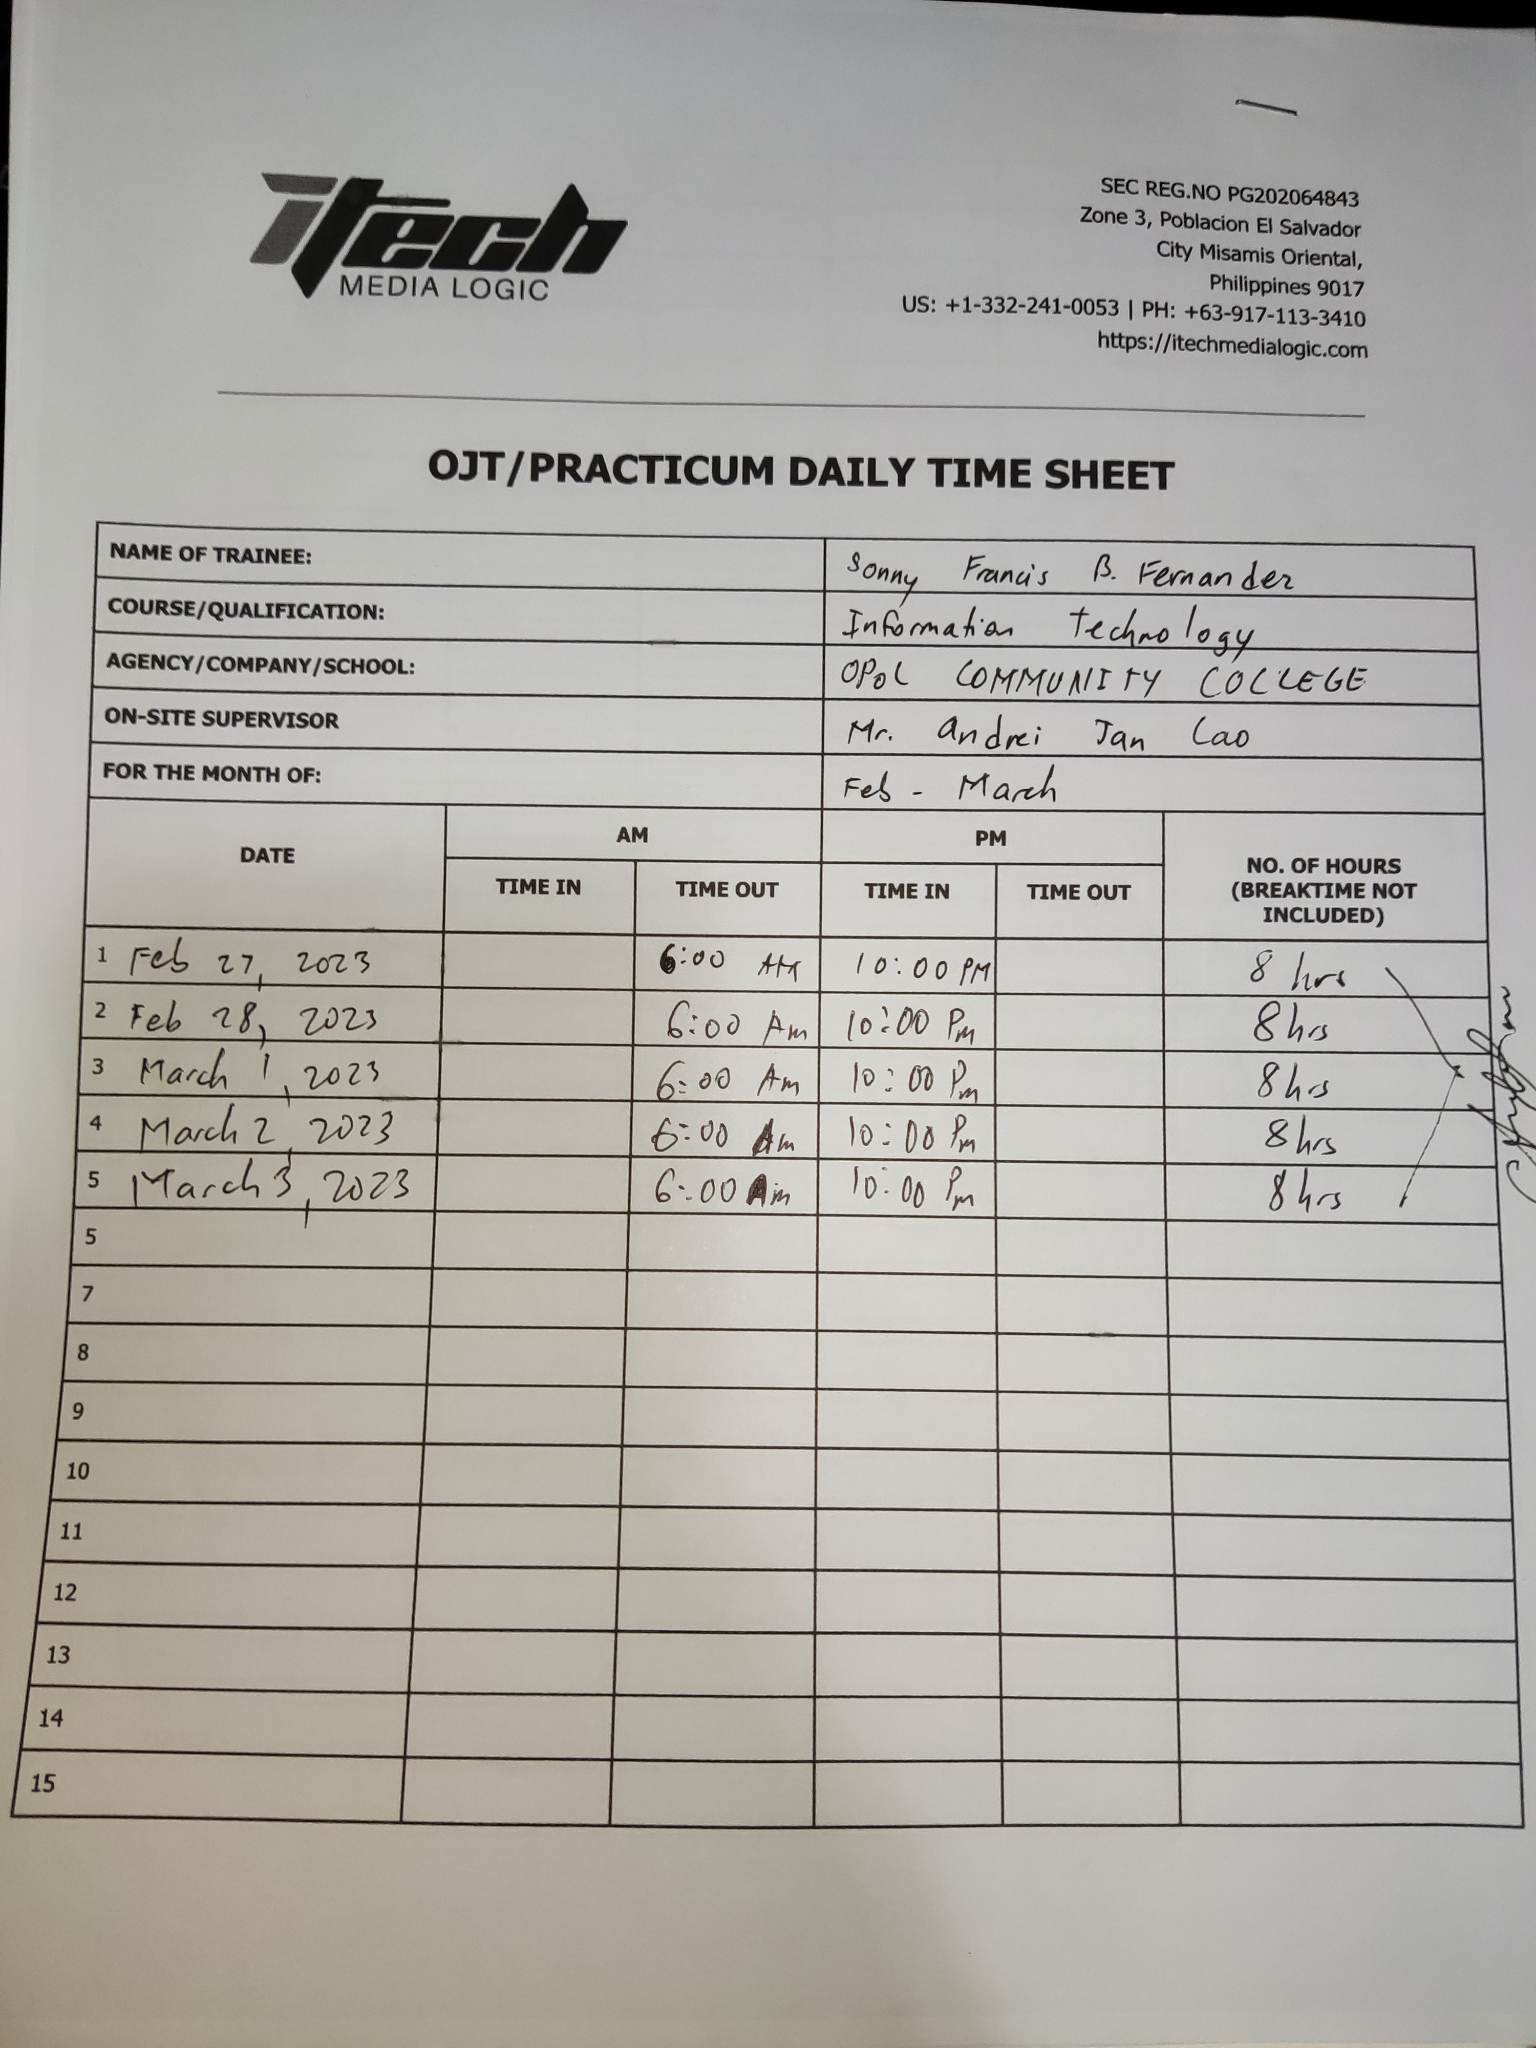 itech
MEDIA LOGIC
SEC REG.NO PG202064843
Zone 3, Poblacion El Salvador
City Misamis Oriental,
Philippines 9017
US: +1-332-241-0053 | PH: +63-917-113-3410
https://itechmedialogic.com
OJT/PRACTICUM DAILY TIME SHEET
NAME OF TRAINEE: Sonny Francis B. Fernandez
COURSE/QUALIFICATION: Information Technology
AGENCY/COMPANY/SCHOOL: OPOL COMMUNITY COLLEGE
ON-SITE SUPERVISOR Mr. Andrei Jan Lao
FOR THE MONTH OF: Feb - March
DATE AM PM NO. OF HOURS (BREAKTIME NOT INCLUDED)
TIME IN TIME OUT TIME IN TIME OUT
1 Feb 27, 2023 6:00 AM 10:00 PM 8 hrs
2 Feb 28, 2023 6:00 Am 10:00 Pm 8 hrs
3 March 1, 2023 6:00 Am 10:00 Pm 8 hrs
4 March 2, 2023 6:00 Am 10:00 Pm 8 hrs
5 March 3, 2023 6:00 Am 10:00 Pm 8 hrs
5
7
8
9
10
11
12
13
14
15